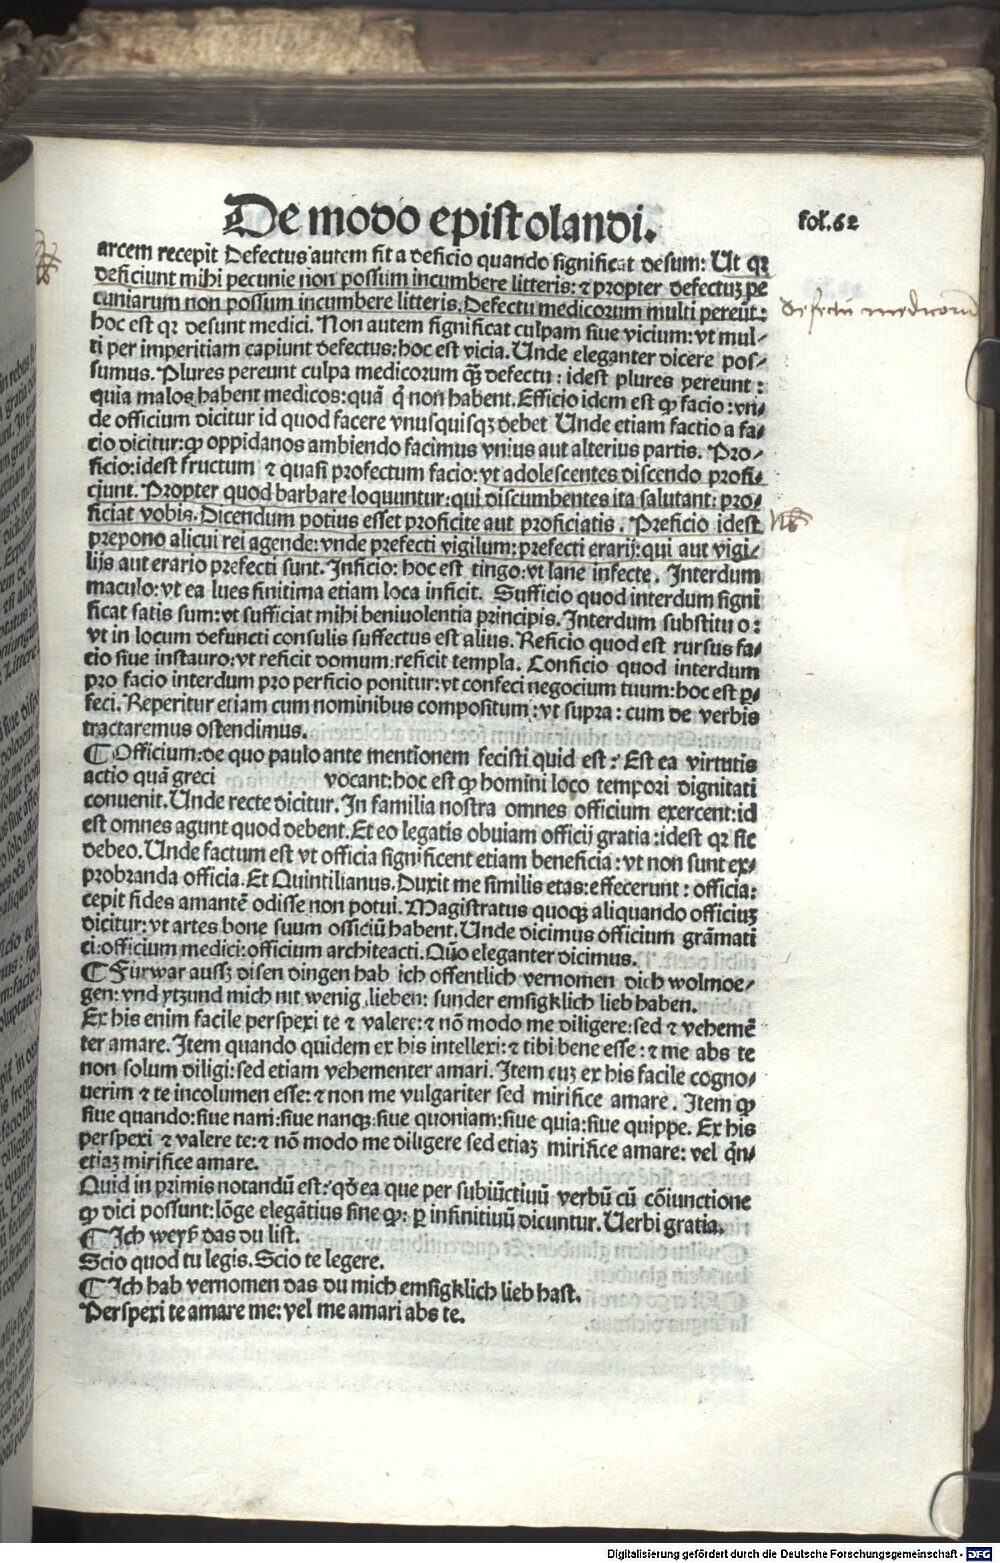 De modo epistolandi.
fol.62
arcem recepit Defectus autem fit a deficio quando significat desum: Ut qꝛ
deficiunt mihi pecunie non possum incumbere litteris: ⁊ propter defectuꝫ pe
cuniarum non possum incumbere litteris. Defectu medicorum multi pereūt:
defectu medicorum
hoc est qꝛ desunt medici. Non autem significat culpam siue vicium: vt mul⸗
ti per imperitiam capiunt defectus: hoc est vicia. Unde eleganter dicere pos⸗
sumus. Plures pereunt culpa medicorum qꝫ̄ defectu: idest plures pereunt:
quia malos habent medicos: quā q̄ non habent. Efficio idem est ꝙ facio: vn⸗
de officium dicitur id quod facere vnusquisqꝫ debet Unde etiam factio a fa⸗
cio dicitur: ꝙ oppidanos ambiendo facimus vnius aut alterius partis. Pro⸗
ficio: idest fructum ⁊ quasi profectum facio: vt adolescentes discendo profi⸗
ciunt. Propter quod barbare loquuntur: qui discumbentes ita salutant: pro⸗
ficiat vobis. Dicendum potius esset proficite aut proficiatis. Preficio idest
prepono alicui rei agende: vnde prefecti vigilum: prefecti erarij: qui aut vigi⸗
lijs aut erario prefecti sunt. Inficio: hoc est tingo: vt lane infecte. Interdum
maculo: vt ea lues finitima etiam loca inficit. Sufficio quod interdum signi
ficat satis sum: vt sufficiat mihi beniuolentia principis. Interdum substituo:
vt in locum defuncti consulis suffectus est alius. Reficio quod est rursus fa⸗
cio siue instauro: vt reficit domum: reficit templa. Conficio quod interdum
pro facio interdum pro perficio ponitur: vt confeci negocium tuum: hoc est ꝑ
feci. Reperitur etiam cum nominibus compositum: vt supra: cum de verbis
tractaremus ostendimus.
¶ Officium: de quo paulo ante mentionem fecisti quid est? Est ea virtutis
actio quā greci vocant: hoc est ꝙ homini loco tempori dignitati
conuenit. Unde recte dicitur. In familia nostra omnes officium exercent: id
est omnes agunt quod debent. Et eo legatis obuiam officij gratia: idest qꝛ sic
debeo. Unde factum est vt officia significent etiam beneficia: vt non sunt ex⸗
probranda officia. Et Quintilianus. Duxit me similis etas: effecerunt: officia:
cepit fides amantē odisse non potui. Magistratus quoqꝫ aliquando officiuꝫ
dicitur: vt artes bone suum officiū habent. Unde dicimus officium grāmati
ci: officium medici: officium architeacti. Quo eleganter dicimus.
¶ Fürwar aussz disen dingen hab ich offentlich vernomen dich wolmoe⸗
gen: vnd ytzund mich nit wenig lieben: sunder emsigklich lieb haben.
Ex his enim facile perspexi te ⁊ valere: ⁊ nō modo me diligere: sed ⁊ vehemē
ter amare. Item quando quidem ex his intellexi: ⁊ tibi bene esse: ⁊ me abs te
non solum diligi: sed etiam vehementer amari. Item cuꝫ ex his facile cogno⸗
uerim ⁊ te incolumen esse: ⁊ non me vulgariter sed mirifice amare. Item ꝙ
siue quando: siue nam: siue nanqꝫ: siue quoniam: siue quia: siue quippe. Ex his
perspexi ⁊ valere te: ⁊ nō modo me diligere sed etiaꝫ mirifice amare: vel q̄n⸗
etiaꝫ mirifice amare.
Quid in primis notandū est? qd̄ ea que per subiūctiuū verbū cū cōiunctione
ꝙ dici possunt: lōge elegātius sine ꝙ: ꝑ infinitiuū dicuntur. Uerbi gratia.
¶ Ich weyß das du list.
Scio quod tu legis. Scio te legere.
¶ Ich hab vernomen das du mich emsigklich lieb hast.
Perspexi te amare me: vel me amari abs te.
Digitalisierung gefördert durch die Deutsche Forschungsgemeinschaft - DFG